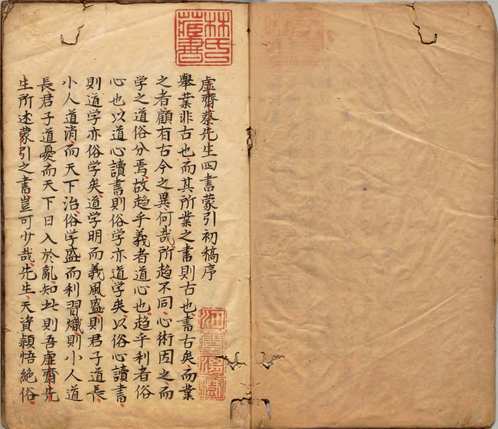 林氏藏書
虛齋蔡先生四書蒙引初稿序
舉業非古也而其所業之書則古也書古矣而業
之者顧有古今之異何哉所趨不同心術因之而
学之道俗分焉故趨乎義者道心也趨乎利者俗
心也以道心讀書則俗学亦道学矣以俗心讀書
則道学亦俗学矣道学明而義風盛則君子道長
小人道消而天下治俗学盛而利習熾則小人道
長君子道憂而天下日入於亂知此則吾虛齋先
生所述蒙引之書豈可少哉先生天資穎悟絕俗